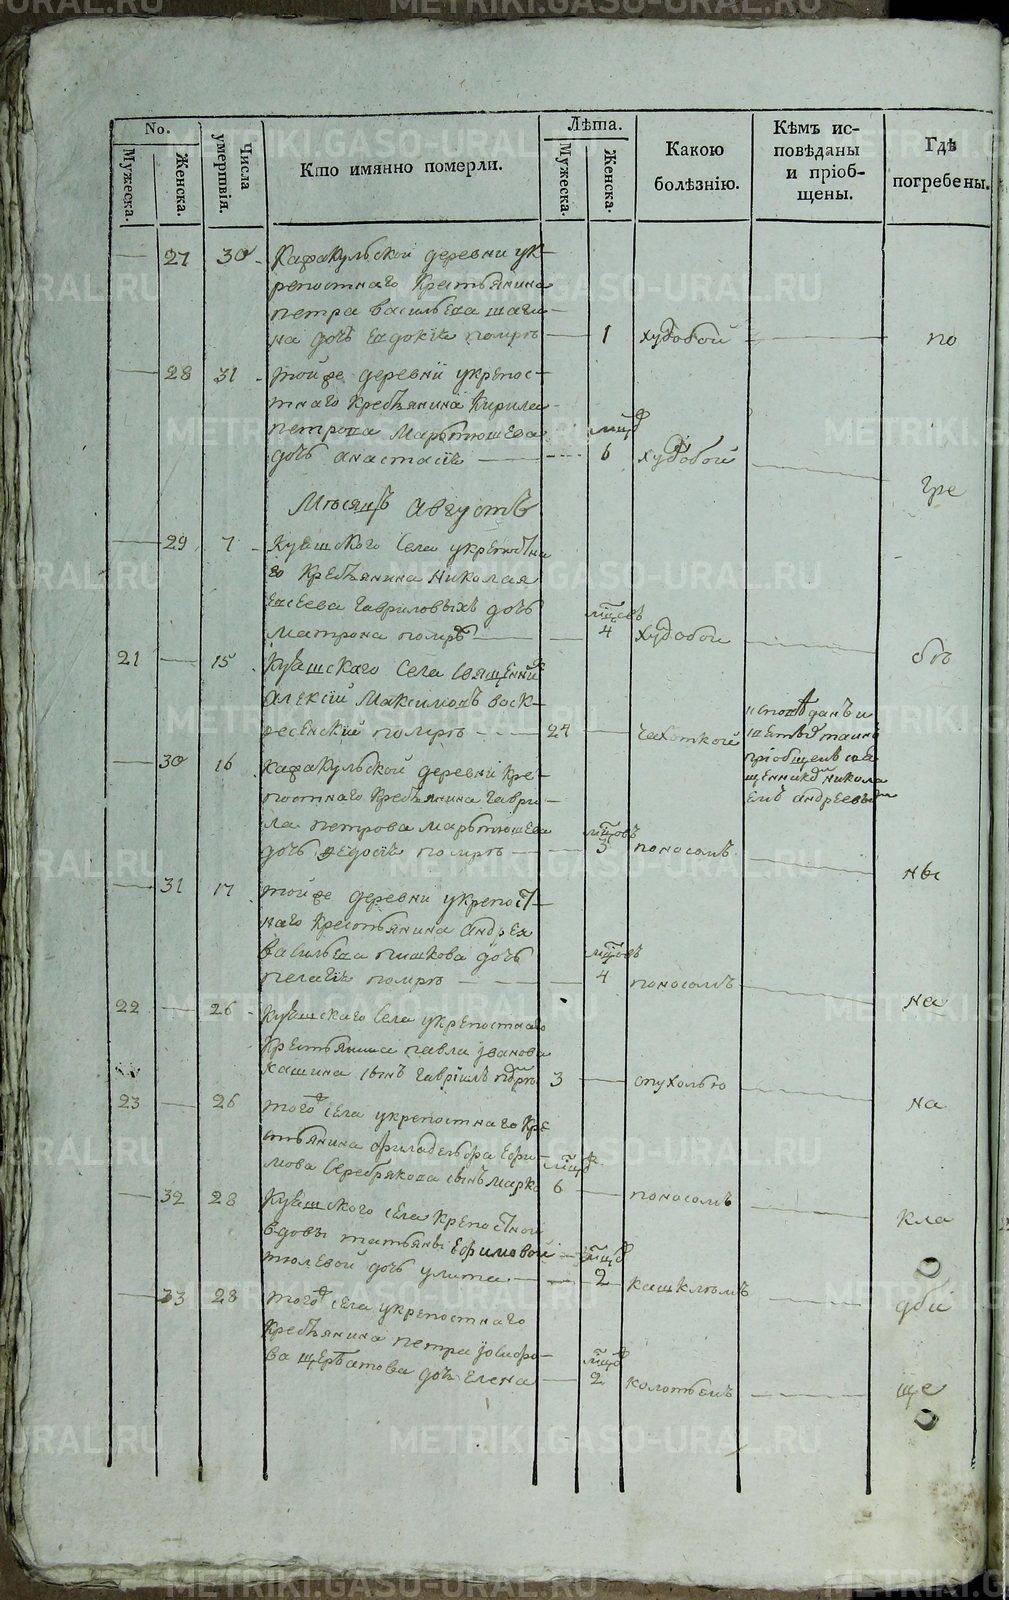 No.
Мужеска.
Женска.
Числа умертвія.
Кто имянно померли.
Лѣта.
Мужеска.
Женска.
Какою
болѣзнію.
Кѣмъ ис-
повѣданы
и пріоб-
щены.
Гдѣ
погребены.
27 30 Каракульской деревни ук-
репостнаго Крестьянина
петра васильева
на дочь евдокія помре 1 худобой по
28 31 тойже деревни укрепос-
тнаго Кресьянина Кирила
петрова Мартюшева
дочь анастасія 6 худобой
гре
Мѣсяцъ августъ
29 7 Села укрепостна
го Кресьянина Николая
евсеева гавриловыхъ дочь
матрона помрѣ 4 худобой
бѣ
21 15 Села священникъ
алексій Максимовъ воск-
ресенскій помре 24 чахоткой
исповѣданъ и
святыхъ таинъ
пріобщенъ свя
щенникомъ никола
емъ андреевымъ
30 16 Каракульской деревни Кре-
постнаго Кресьянина гаври-
ла петрова мартюшева
дочь Федосія помре 3 поносомъ ны
31 17 тойже деревни укрепост-
наго Крестьянина андрея
васильева пашкова дочь
пелагія помре 4 поносомъ на
22 26 Села укрепостнаго
Крестьянина павла іванова
кашина сынъ гавріилъ помре 3 опухолью на
23 26 тогожъ села укрепостнаго Кре
стьянина филадельфа ефи-
мова Серебрякова сынъ марко 6 поносомъ
32 28 села Крепостной кла
вдовы татьяны ефимовой
тюлевой дочь улита 2 кашклюмъ
33 28 тогожъ села укрепостнаго дби
Кресьянина петра
ва щербатова дочь елена 2 колотьемъ ще
METRIKI.GASO-URAL.RU